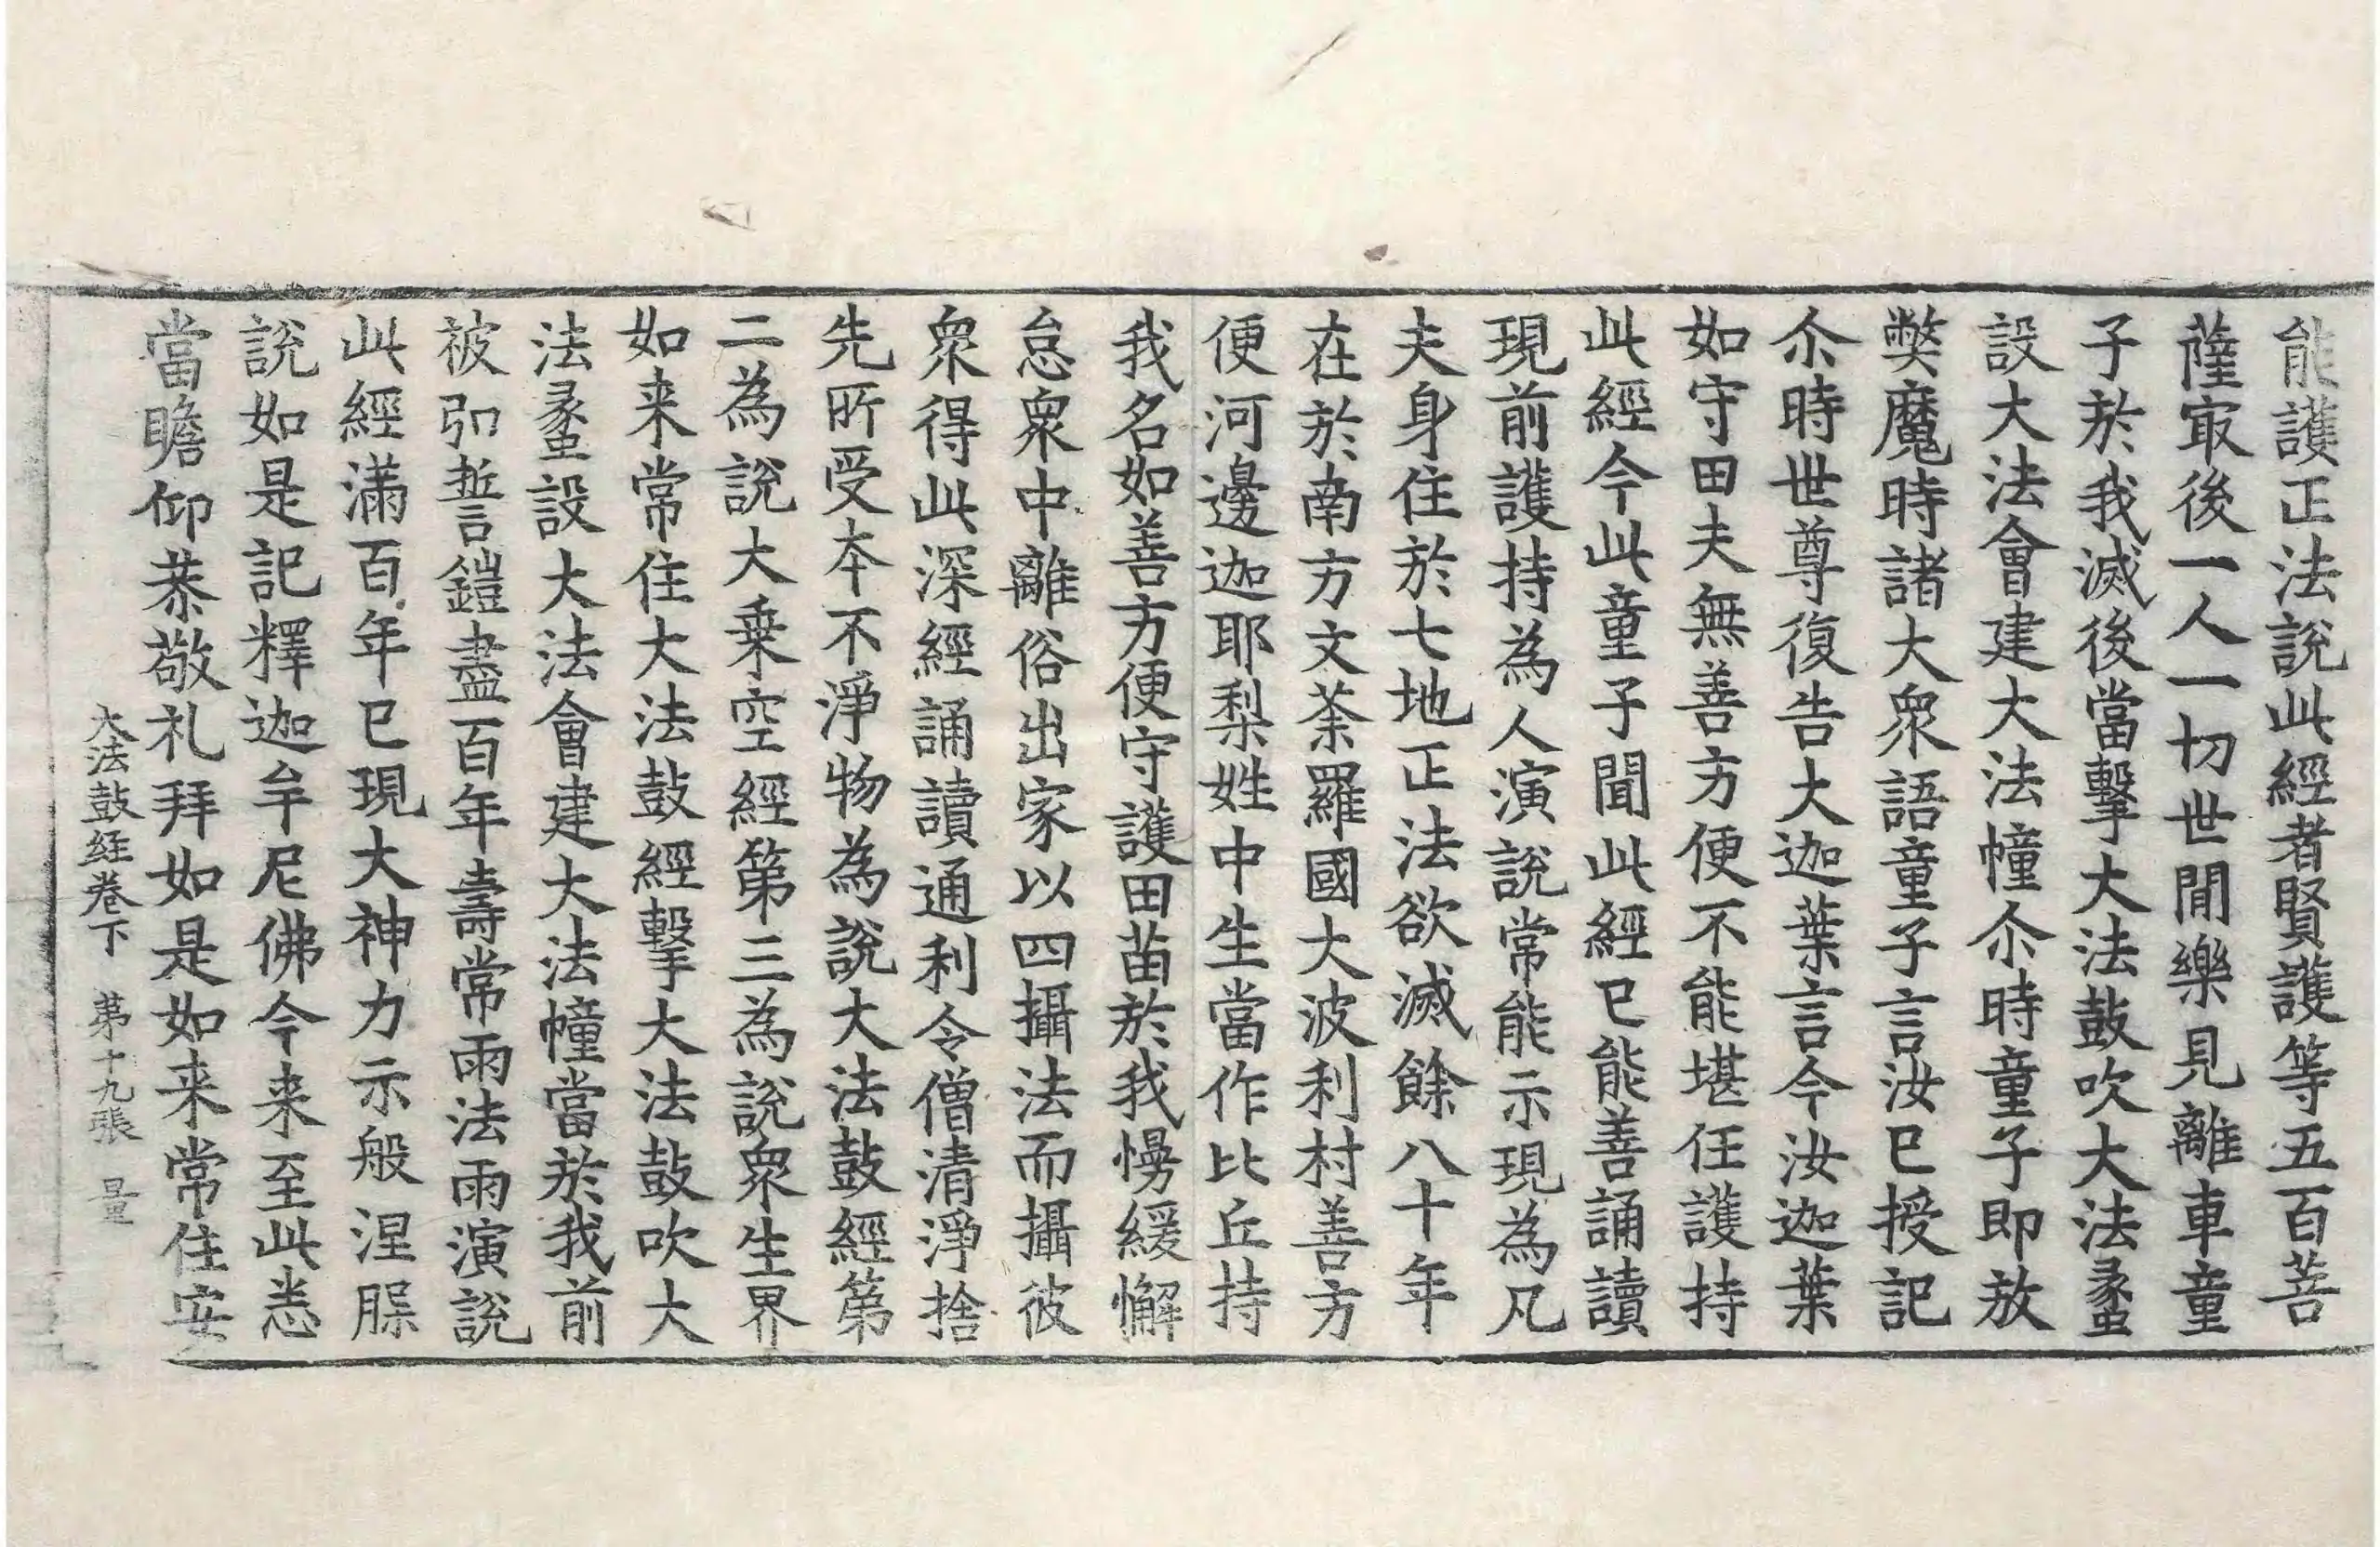 能護正法說此經者賢護等五百菩
薩㝡後一人一切世閒樂見離車童
子於我滅後當擊大法鼓吹大法蠡
設大法會建大法幢尒時童子即放
弊魔時諸大衆語童子言汝已授記
尒時世尊復告大迦葉言今汝迦葉
如守田夫無善方便不能堪任護持
此經今此童子聞此經已能善誦讀
現前護持為人演說常能示現為凡
夫身住於七地正法欲滅餘八十年
在於南方文荼羅國大波利村善方
便河邊迦耶梨姓中生當作比丘持
我名如善方便守護田苗於我慢緩懈
怠衆中離俗出家以四攝法而攝彼
衆得此深經誦讀通利令僧清淨捨
先所受本不淨物為說大法鼓經第
二為說大乗空經第三為說衆生界
如来常住大法鼓經擊大法鼓吹大
法蠡設大法會建大法幢當於我前
被弘誓鎧盡百年壽常雨法雨演說
此經滿百年已現大神力示般涅槃
說如是記釋迦牟尼佛今来至此悉
當瞻仰恭敬礼拜如是如来常住安
大法鼓經卷下　苐十九張　量